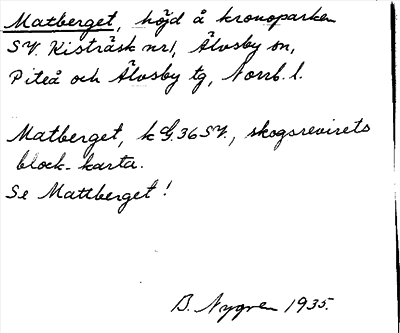 Matberget, höjd å kronoparken
SV. Kisträsk nr 1, Älvsby sn,
Piteå och Älvsby tg, Norrb. l.
Matberget, k 36 SV., skogsrevirets
block-karta.
Se Mattberget!
B. Nygren 1935.